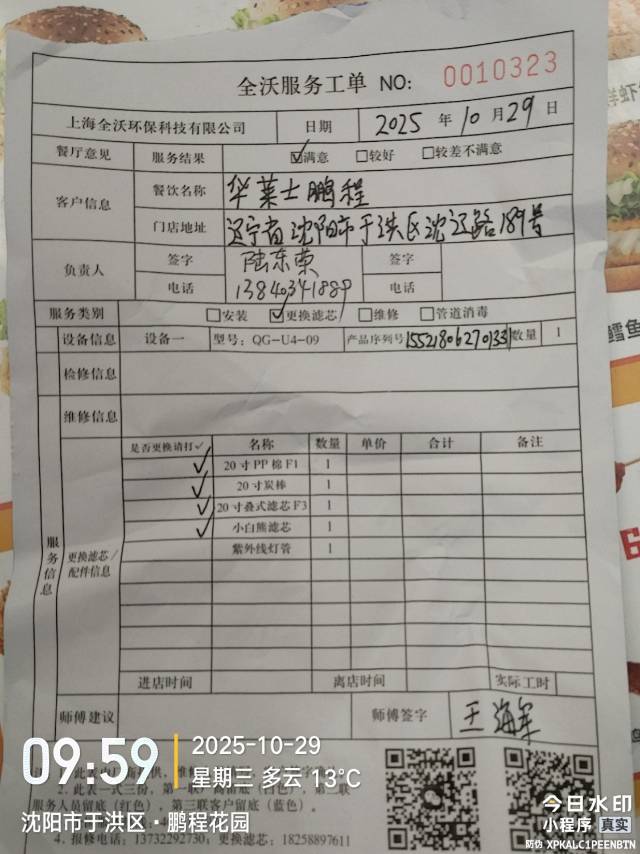 全沃服务工单 NO: 0010323
上海全沃环保科技有限公司 日期 2025 年 10 月 29 日
餐厅意见 服务结果 ☑满意 □较好 □较差不满意
客户信息 餐饮名称 华莱士鹏程
门店地址 辽宁省沈阳市于洪区沈辽路189号
负责人 签字 陆东荣 签字
电话 13840341889 电话
服务类别 □安装 ☑更换滤芯 □维修 □管道消毒
设备信息 设备一 型号：QG-U4-09 产品序列号 数量 1
检修信息
维修信息
服务信息 更换滤芯/配件信息
是否更换请打✓ 名称 数量 单价 合计 备注
✓ 20寸PP棉F1 1
✓ 20寸炭棒 1
✓ 20寸叠式滤芯F3 1
✓ 小白熊滤芯 1
紫外线灯管 1
进店时间 离店时间 实际工时
师傅建议 师傅签字 王海军
09:59
2025-10-29
星期三 多云 13℃
沈阳市于洪区·鹏程花园
2. 此表一式三份，第一联
服务人员留底（红色），第三联客户留底（蓝色）。
4. 报修电话：13732292730；更换滤芯：18258897611
今日水印
小程序 真实
防伪 XPKALC1PEENBTN